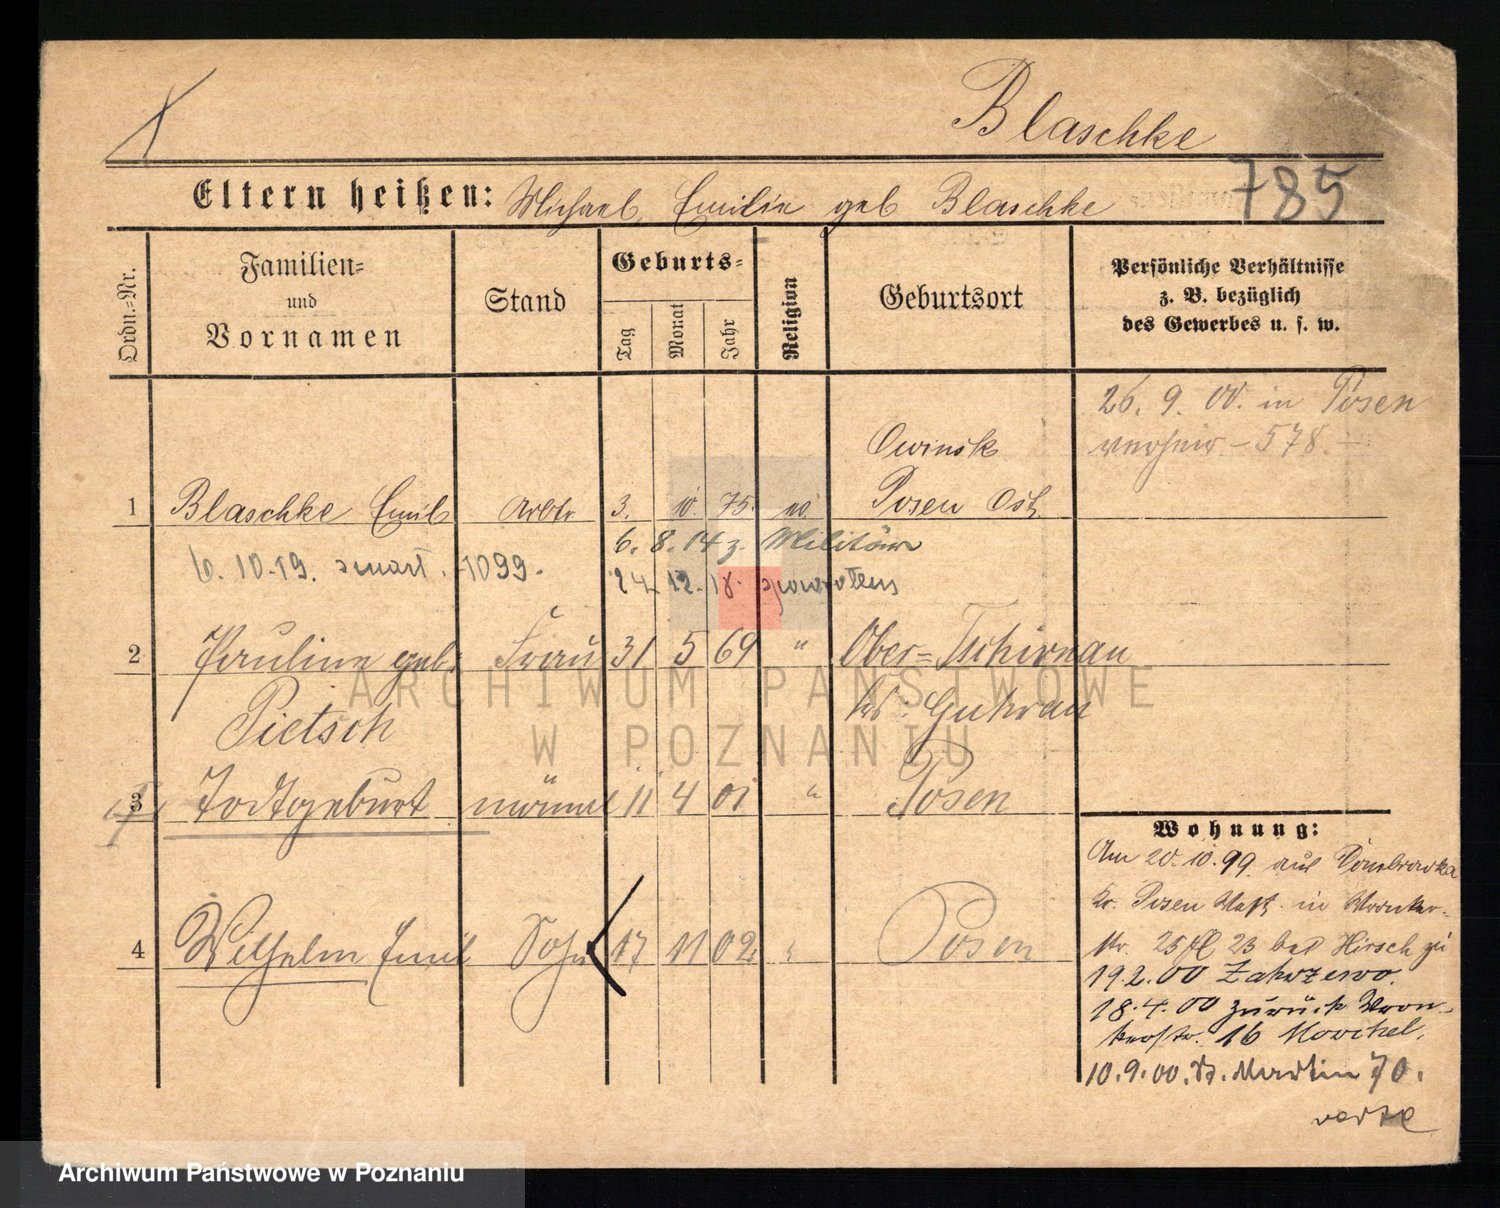 Blaschke
Eltern heißen: Michael, Emilie geb Blaschke
785
Ordn.-Nr.
Familien-
und
Vornamen
Stand
Geburts-
Tag
Monat
Jahr
Religion
Geburtsort
Persönliche Verhältnisse
z. B. bezüglich
des Gewerbes u. s. w.
26. 9. 00. in Posen
verheir - 578. -
Owinsk
1 Blaschke Emil Arbtr 3. 10. 75. Posen Ost
6. 8. 14 z. Militär
6. 10. 19. zmarł. 1099.
24. 12. 18. spowrotem
2 Pauline geb. Frau 31 5 69 " Ober-Tschirnau
Pietsch Kr. Guhrau
3 Todtgeburt männl 11 4 01 " Posen
4 Wilhelm Emil Sohn 17 11 02 " Posen
Wohnung:
Am 20. 10. 99 aus Dombrowka
Kr. Posen West in Wronker-
str. 25 23 bei Hirsch zu
19.2.00 Zakrzewo.
18.4.00 zurück Wron-
kerstr. 16 Morchel.
10.9.00. St. Martin 70.
verte
ARCHIWUM PAŃSTWOWE
W POZNANIU
Archiwum Państwowe w Poznaniu